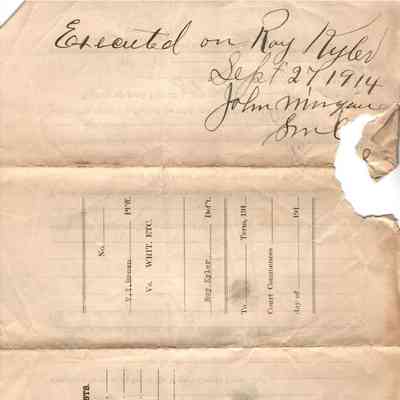 Executed on Roy Kyler
Sept 27 1914
John
No.
V.T. Brown PFF.
Vs. WHIT. ETC.
Roy Kyler Def't.
To Term, 191
Court Commences
day of 191